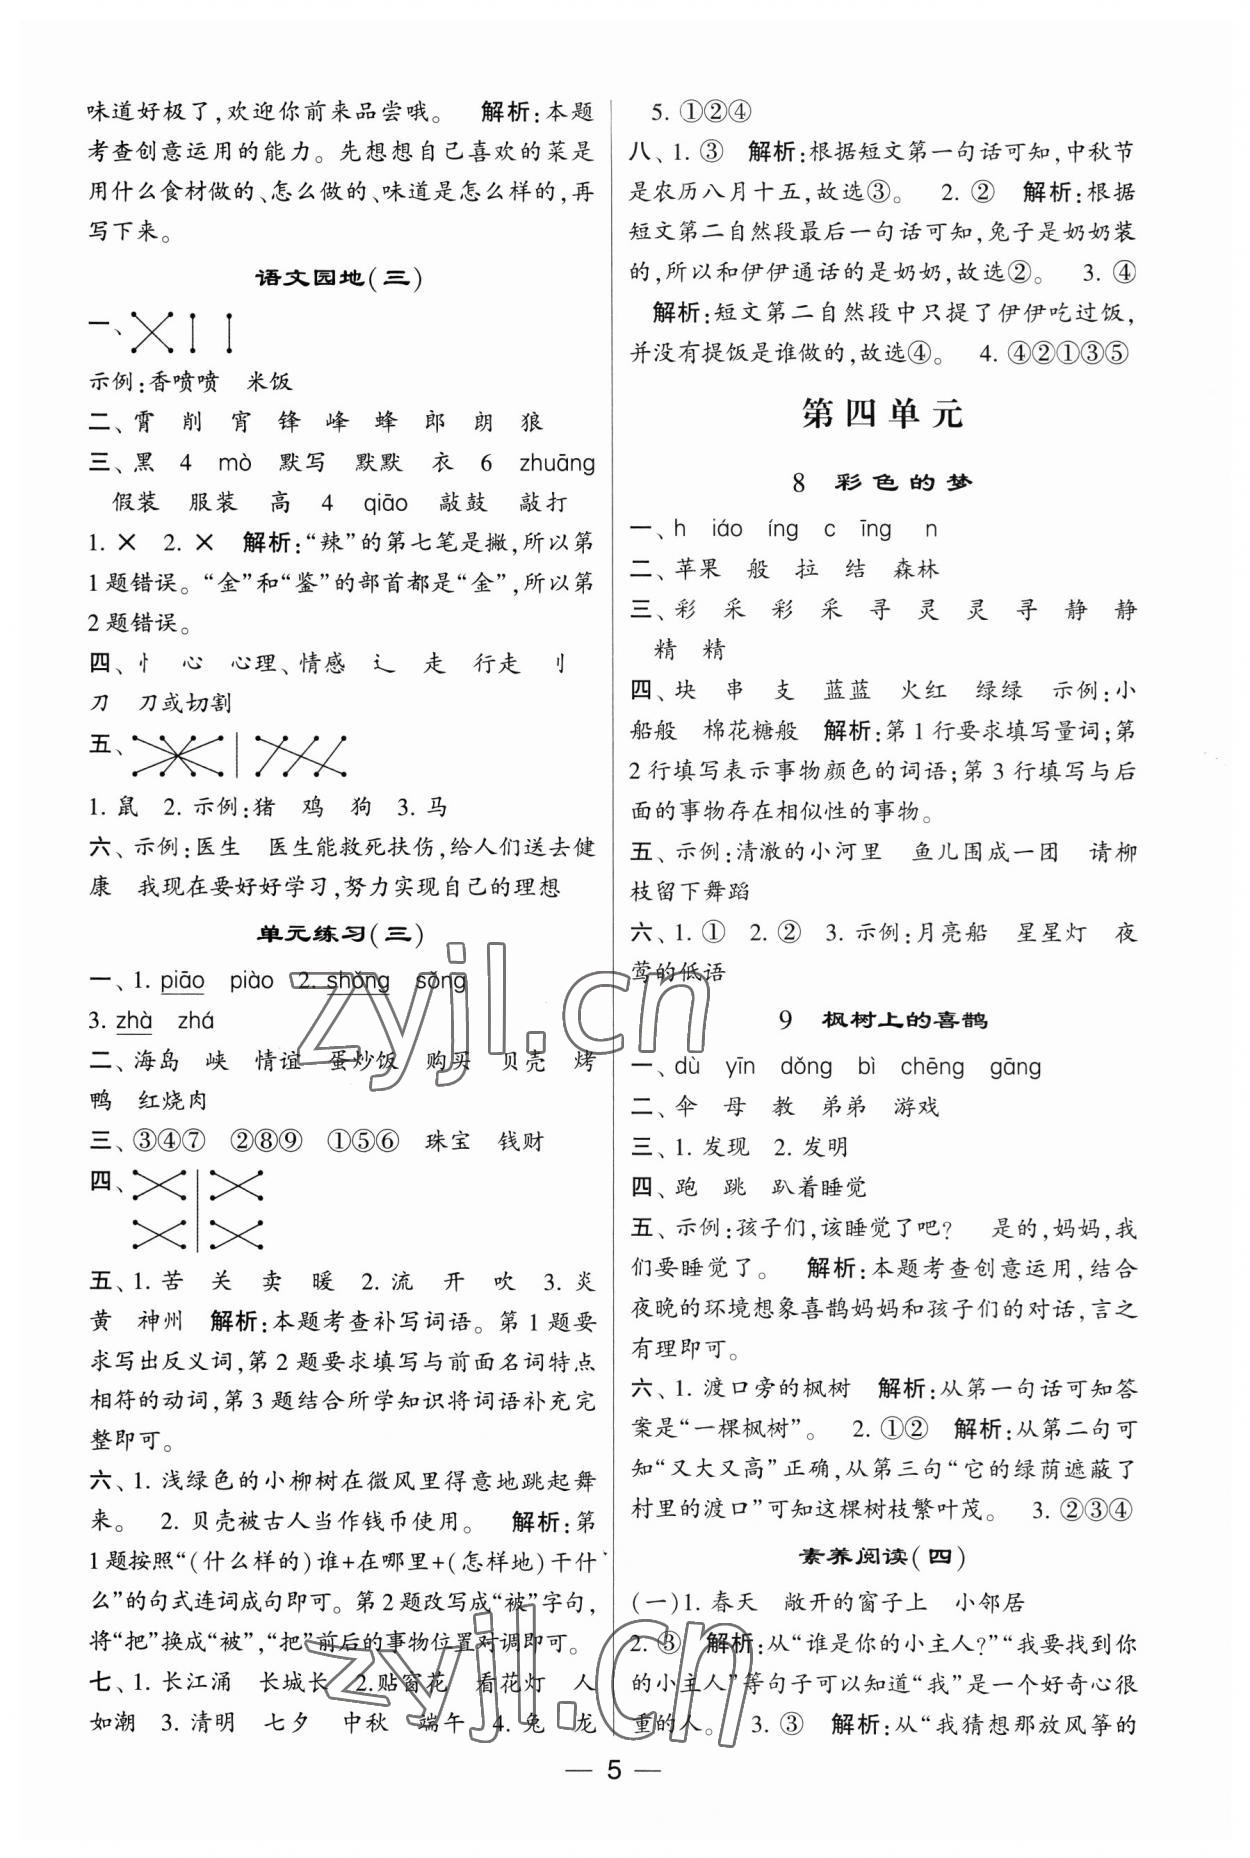 味道好极了,欢迎你前来品尝哦。 解析:本题
考查创意运用的能力。先想想自己喜欢的菜是
用什么食材做的、怎么做的、味道是怎么样的,再
写下来。
语文园地(三)
一、
示例:香喷喷 米饭
二、霄 削 宵 锋 峰 蜂 郎 朗 狼
三、黑 4 mò 默写 默默 衣 6 zhuāng
假装 服装 高 4 qiāo 敲鼓 敲打
1. × 2. × 解析:“辣”的第七笔是撇,所以第
1题错误。“金”和“鉴”的部首都是“金”,所以第
2题错误。
四、忄 心 心理、情感 辶 走 行走 刂
刀 刀或切割
五、
1. 鼠 2. 示例:猪 鸡 狗 3. 马
六、示例:医生 医生能救死扶伤,给人们送去健
康 我现在要好好学习,努力实现自己的理想
单元练习(三)
一、1. piāo piào 2. shǒng sǒng
3. zhà zhá
二、海岛 峡 情谊 蛋炒饭 购买 贝壳 烤
鸭 红烧肉
三、③④⑦ ②⑧⑨ ①⑤⑥ 珠宝 钱财
四、
五、1. 苦 关 卖 暖 2. 流 开 吹 3. 炎
黄 神州 解析:本题考查补写词语。第1题要
求写出反义词,第2题要求填写与前面名词特点
相符的动词,第3题结合所学知识将词语补充完
整即可。
六、1. 浅绿色的小柳树在微风里得意地跳起舞
来。 2. 贝壳被古人当作钱币使用。 解析:第
1题按照“(什么样的)谁+在哪里+(怎样地)干什
么”的句式连词成句即可。第2题改写成“被”字句,
将“把”换成“被”,“把”前后的事物位置对调即可。
七、1. 长江涌 长城长 2.贴窗花 看花灯 人
如潮 3. 清明 七夕 中秋 端午 4. 兔 龙
5. ①②④
八、1. ③ 解析:根据短文第一句话可知,中秋节
是农历八月十五,故选③。 2. ② 解析:根据
短文第二自然段最后一句话可知,兔子是奶奶装
的,所以和伊伊通话的是奶奶,故选②。 3. ④
解析:短文第二自然段中只提了伊伊吃过饭,
并没有提饭是谁做的,故选④。 4. ④②①③⑤
第四单元
8 彩色的梦
一、h iáo íng c īng n
二、苹果 般 拉 结 森林
三、彩 采 彩 采 寻 灵 灵 寻 静 静
精 精
四、块 串 支 蓝蓝 火红 绿绿 示例:小
船般 棉花糖般 解析:第1行要求填写量词;第
2行填写表示事物颜色的词语;第3行填写与后
面的事物存在相似性的事物。
五、示例:清澈的小河里 鱼儿围成一团 请柳
枝留下舞蹈
六、1. ① 2. ② 3. 示例:月亮船 星星灯 夜
莺的低语
9 枫树上的喜鹊
一、dù yīn dǒng bì chēng gāng
二、伞 母 教 弟弟 游戏
三、1. 发现 2. 发明
四、跑 跳 趴着睡觉
五、示例:孩子们,该睡觉了吧? 是的,妈妈,我
们要睡觉了。 解析:本题考查创意运用,结合
夜晚的环境想象喜鹊妈妈和孩子们的对话,言之
有理即可。
六、1. 渡口旁的枫树 解析:从第一句话可知答
案是“一棵枫树”。 2. ①② 解析:从第二句可
知“又大又高”正确,从第三句“它的绿荫遮蔽了
村里的渡口”可知这棵树枝繁叶茂。 3. ②③④
素养阅读(四)
(一)1. 春天 敞开的窗子上 小邻居
2. ③ 解析:从“谁是你的小主人?”“我要找到你
的小主人”等句子可以知道“我”是一个好奇心很
重的人。 3. ③ 解析:从“我猜想那放风筝的
— 5 —
zyjl.cn
zyjl.cn